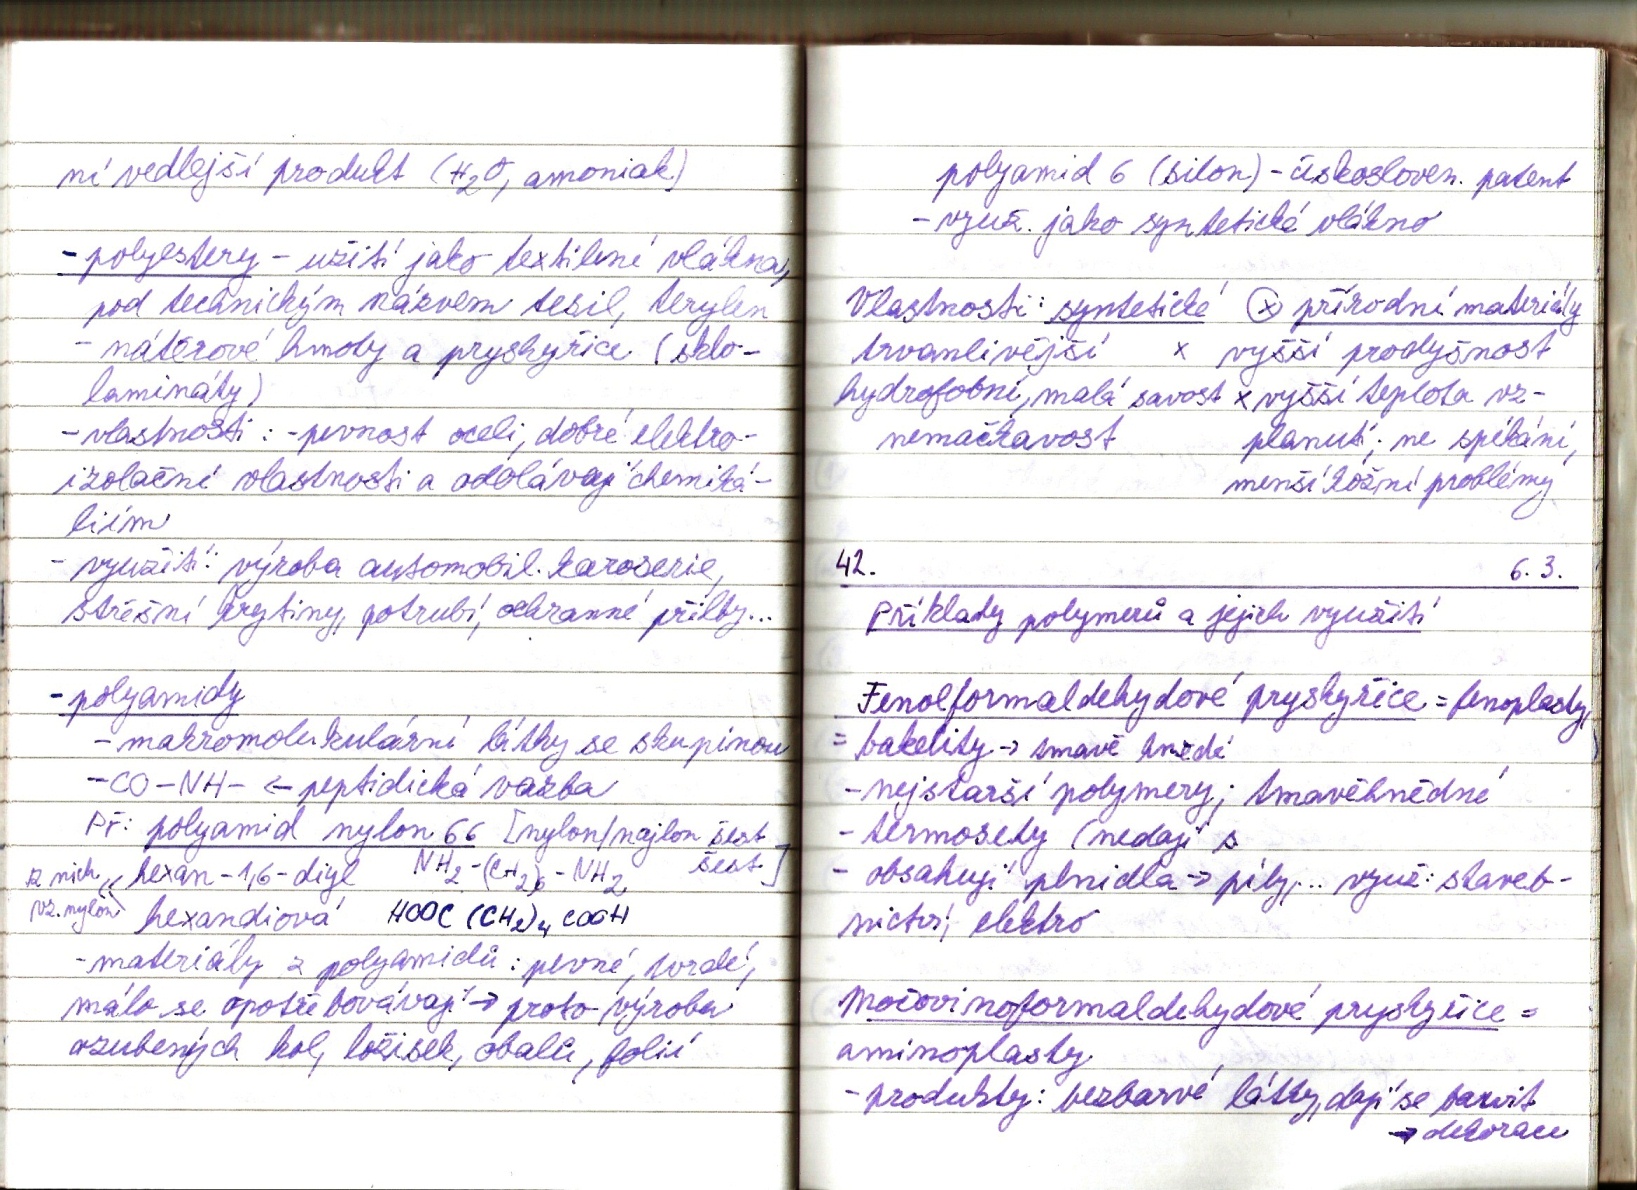 ní vedlejší produkt (H2O, amoniak)
- polyestery - užití jako textilní vlákna,
pod technickým názvem tesil, terylen
- nátěrové hmoty a pryskyřice (sklo-
lamináty)
- vlastnosti: - pevnost oceli, dobré elektro-
izolační vlastnosti a odolávají chemiká-
liím
- využití: výroba automobil. karoserie,
střešní krytiny, potrubí, ochranné přilby...
- polyamidy
- makromolekulární látky se skupinou
-CO-NH- ← peptidická vazba
Př: polyamid nylon 66 [nylon/najlon šest
šest]
z nich vz. nylon
hexan-1,6-diyl NH2-(CH2)6-NH2
hexandiová HOOC (CH2)4 COOH
- materiály z polyamidů: pevné, tvrdé,
málo se opotřebovávají → proto výroba
ozubených kol, ložisek, obalů, folií
polyamid 6 (silon) - českosloven. patent
- využ. jako syntetické vlákno
Vlastnosti: syntetické ⊗ přírodní materiály
trvanlivější x vyšší prodyšnost
hydrofobní, malá savost x vyšší teplota vz-
nemačkavost planutí; ne spékání,
menší kožní problémy
42. 6. 3.
Příklady polymerů a jejich využití
Fenolformaldehydové pryskyřice = fenoplasty,
= bakelity → tmavě hnědé
- nejstarší polymery; tmavěhnědné
- termosety (nedají s
- obsahují plnidla → piliny... využ: staveb-
nictví, elektro
Močovinoformaldehydové pryskyřice =
aminoplasty
- produkty: bezbarvé látky, dají se barvit
→ dekorace